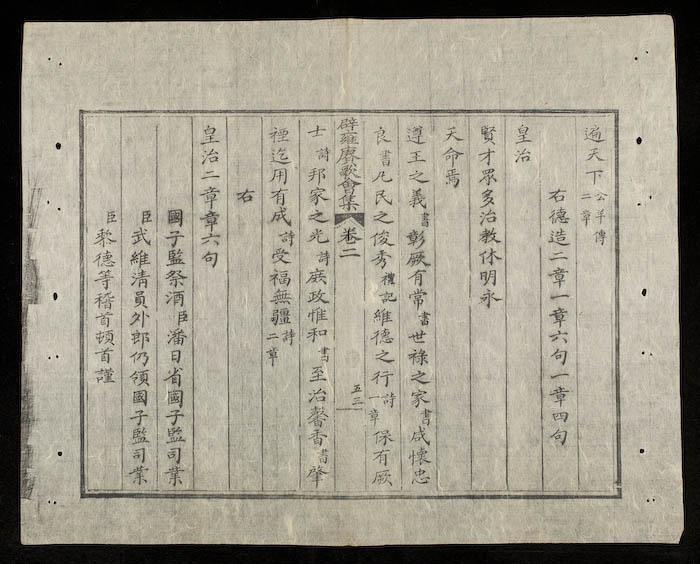 遍天下公羊傳二章
右德造二章一章六句一章四句
皇治
賢才眾多治教休明永
天命焉
遵王之義書彰厥有常書世祿之家書咸懷忠
良書凡民之俊秀禮記維德之行詩一章保有厥
辟雍賡歌會集卷二
五三
士詩邦家之光詩庶政惟和書至治馨香書肇
禋迄用有成詩受福無疆詩二章
右
皇治二章章六句
國子監祭酒臣潘日省國子監司業
臣武維清員外郎仍領國子監司業
臣黎德等稽首頓首謹